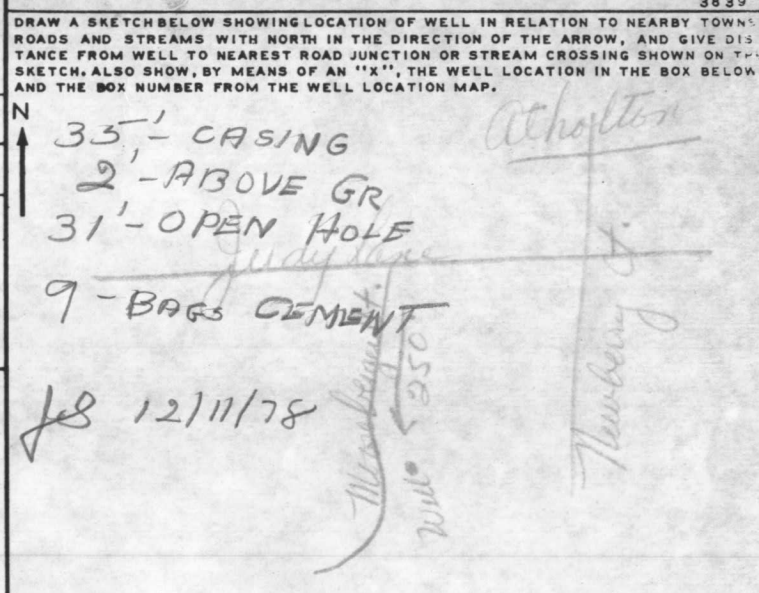 3639
DRAW A SKETCH BELOW SHOWING LOCATION OF WELL IN RELATION TO NEARBY TOWNS
ROADS AND STREAMS WITH NORTH IN THE DIRECTION OF THE ARROW, AND GIVE DIS
TANCE FROM WELL TO NEAREST ROAD JUNCTION OR STREAM CROSSING SHOWN ON THE
SKETCH. ALSO SHOW, BY MEANS OF AN "X", THE WELL LOCATION IN THE BOX BELOW
AND THE BOX NUMBER FROM THE WELL LOCATION MAP.
N
Atholton
33'- CASING
2'-ABOVE GR
31'-OPEN HOLE
Judy Lane
9 - BAGS CEMENT
250
Newberry
JS 12/11/78
Well